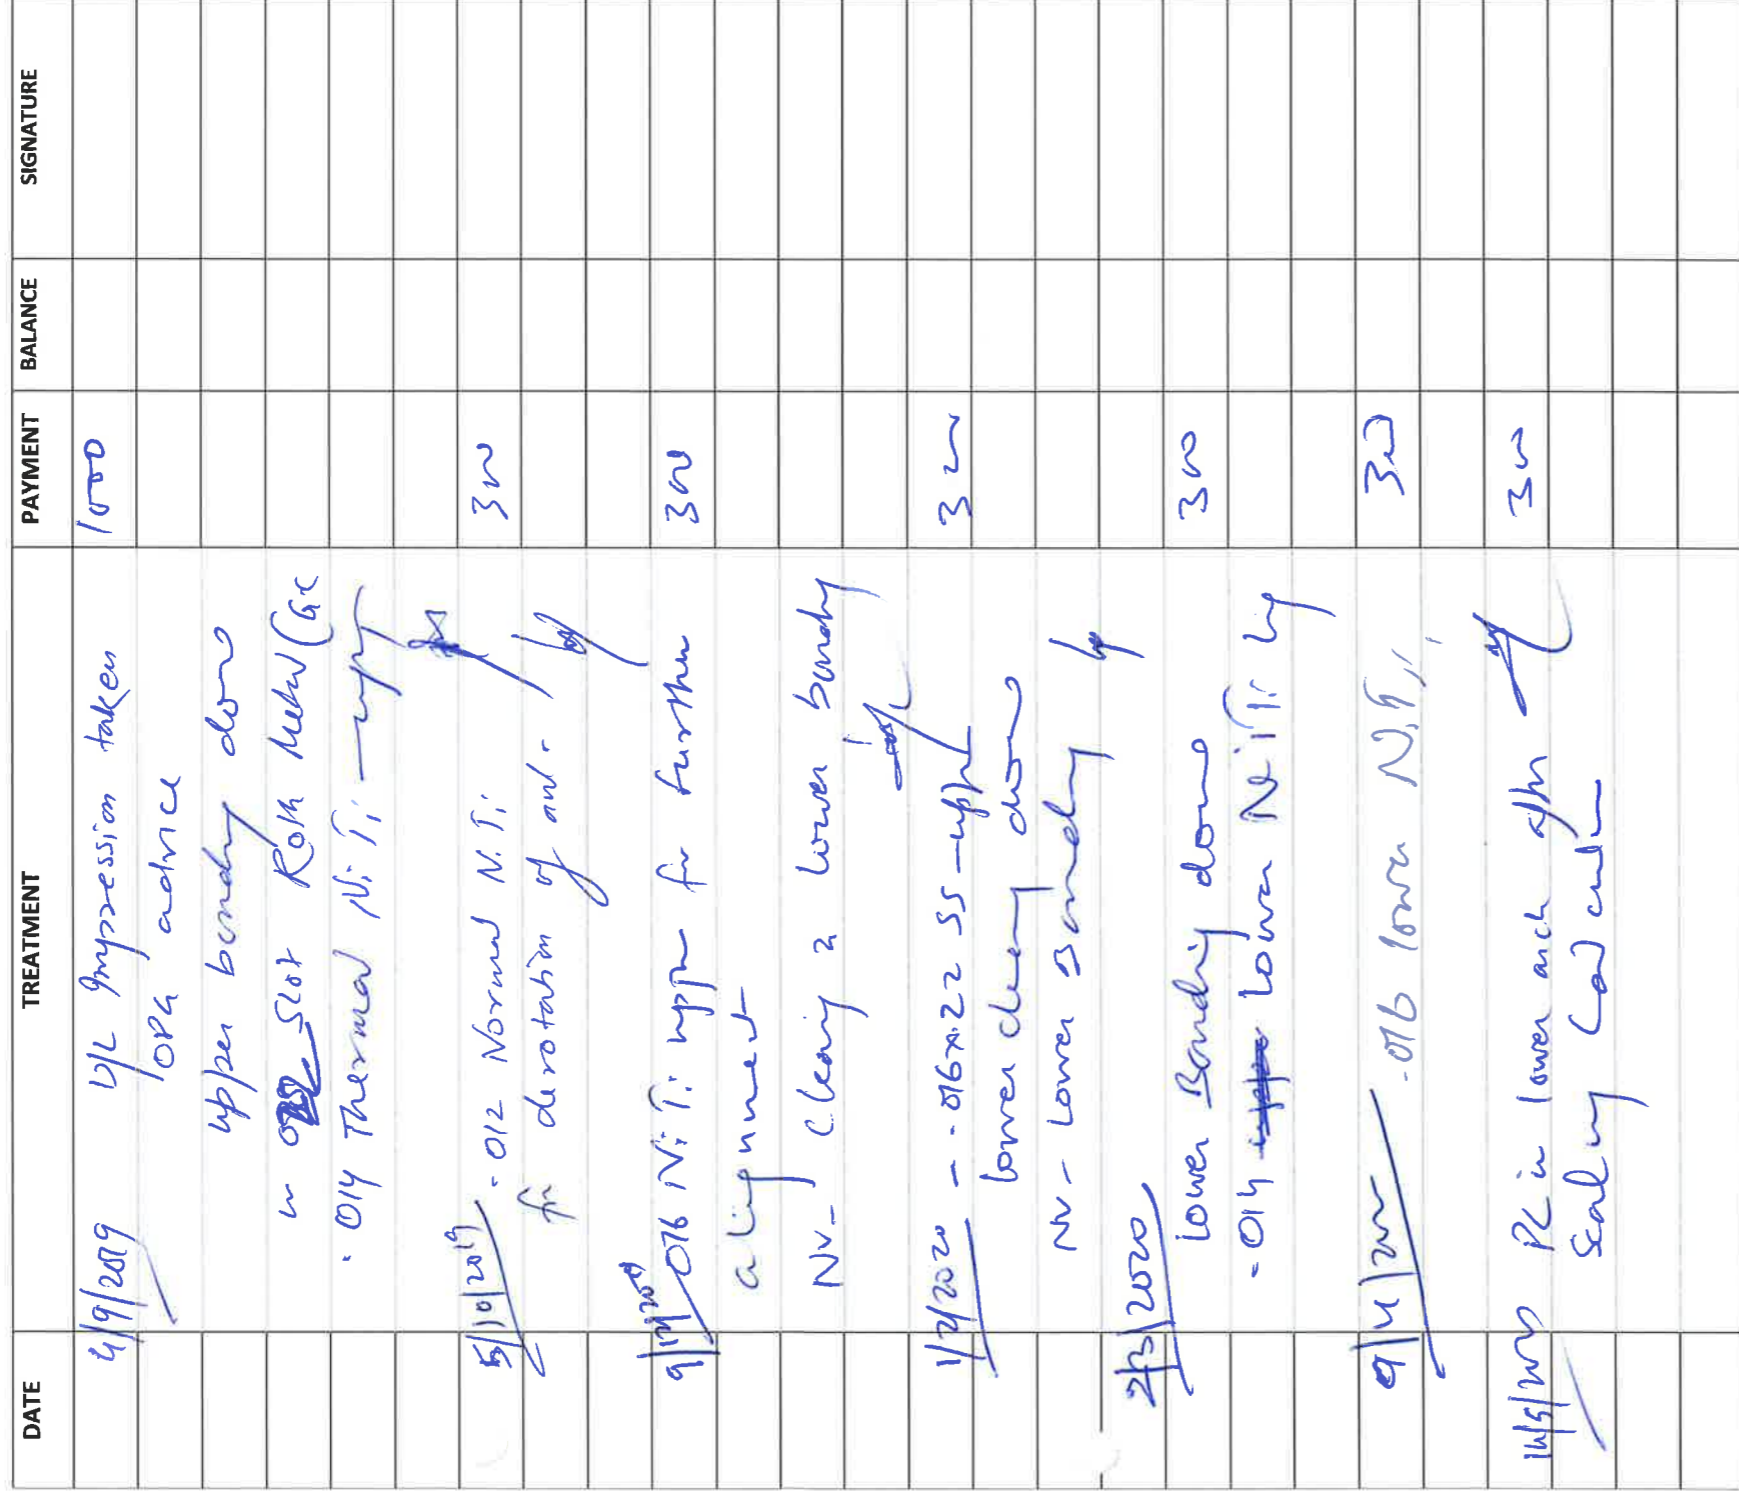 DATE TREATMENT PAYMENT BALANCE SIGNATURE
4/9/2019 U/L Impression taken 1000
OPG advice
upper bondy done
in 022 Slot Roth Metal (GC
.014 Thermal NiTi — upper
5/10/2019 .012 Normal NiTi 300
for derotation of and.
9/12/2019 016 NiTi upper for further 300
alignment
NV- Cleaning 2 lower bondy
1/2/2020 - .016x.22 SS - upper 300
lower cleaning done
NV- Lower Bonding
2/3/2020
Lower Bonding done 300
.014 upper Lower NiTi
9/4/2020 .016 lower NiTi 300
14/5/2020 PC in lower arch after 300
Scaling